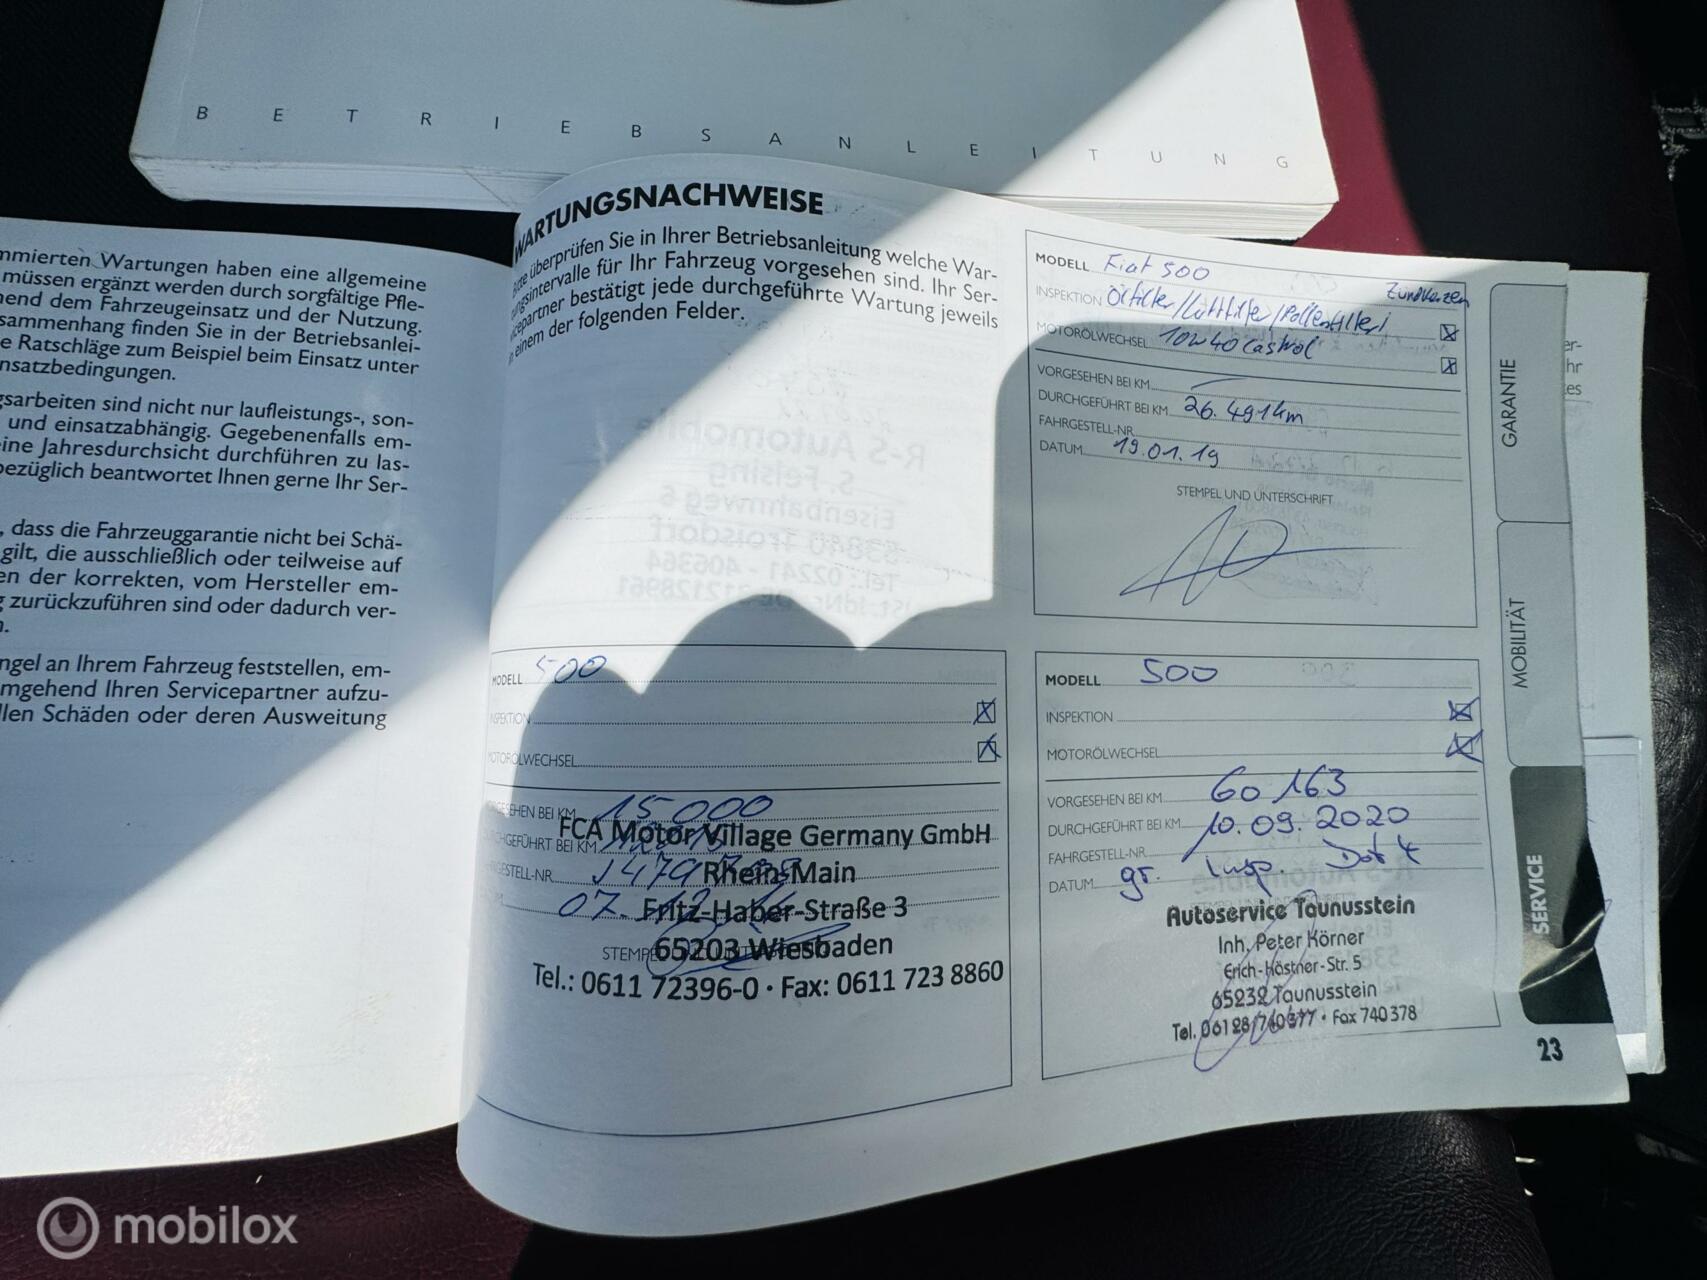 BETRIEBSANLEITUNG
mmierten Wartungen haben eine allgemeine
müssen ergänzt werden durch sorgfältige Pfle-
end dem Fahrzeugeinsatz und der Nutzung.
sammenhang finden Sie in der Betriebsanlei-
e Ratschläge zum Beispiel beim Einsatz unter
nsatzbedingungen.
gsarbeiten sind nicht nur laufleistungs-, son-
und einsatzabhängig. Gegebenenfalls em-
eine Jahresdurchsicht durchführen zu las-
bezüglich beantwortet Ihnen gerne Ihr Ser-
, dass die Fahrzeuggarantie nicht bei Schä-
gilt, die ausschließlich oder teilweise auf
en der korrekten, vom Hersteller em-
g zurückzuführen sind oder dadurch ver-
n.
ngel an Ihrem Fahrzeug feststellen, em-
mgehend Ihren Servicepartner aufzu-
llen Schäden oder deren Ausweitung
WARTUNGSNACHWEISE
Bitte überprüfen Sie in Ihrer Betriebsanleitung welche War-
tungsintervalle für Ihr Fahrzeug vorgesehen sind. Ihr Ser-
vicepartner bestätigt jede durchgeführte Wartung jeweils
in einem der folgenden Felder.
MODELL 500
INSPEKTION
MOTORÖLWECHSEL
VORGESEHEN BEI KM 15 000
DURCHGEFÜHRT BEI KM
FAHRGESTELL-NR.
07.
STEMPEL UND UNTERSCHRIFT
FCA Motor Village Germany GmbH
Rhein-Main
Fritz-Haber-Straße 3
65203 Wiesbaden
Tel.: 0611 72396-0 • Fax: 0611 723 8860
MODELL Fiat 500
Zündkerzen
INSPEKTION Ölfilter/Luftfilter/Pollenfilter/
MOTORÖLWECHSEL 10W40 Castrol
VORGESEHEN BEI KM
DURCHGEFÜHRT BEI KM 26.491km
FAHRGESTELL-NR.
DATUM 19.01.19
STEMPEL UND UNTERSCHRIFT
MODELL 500
INSPEKTION
MOTORÖLWECHSEL
VORGESEHEN BEI KM 60 163
DURCHGEFÜHRT BEI KM 10.09.2020
FAHRGESTELL-NR.
DATUM gr. Insp. Dot 4
Autoservice Taunusstein
Inh. Peter Körner
Erich-Kästner-Str. 5
65232 Taunusstein
Tel. 06128/740377 • Fax 740 378
GARANTIE
MOBILITÄT
SERVICE
23
er-
hr
es
mobilox